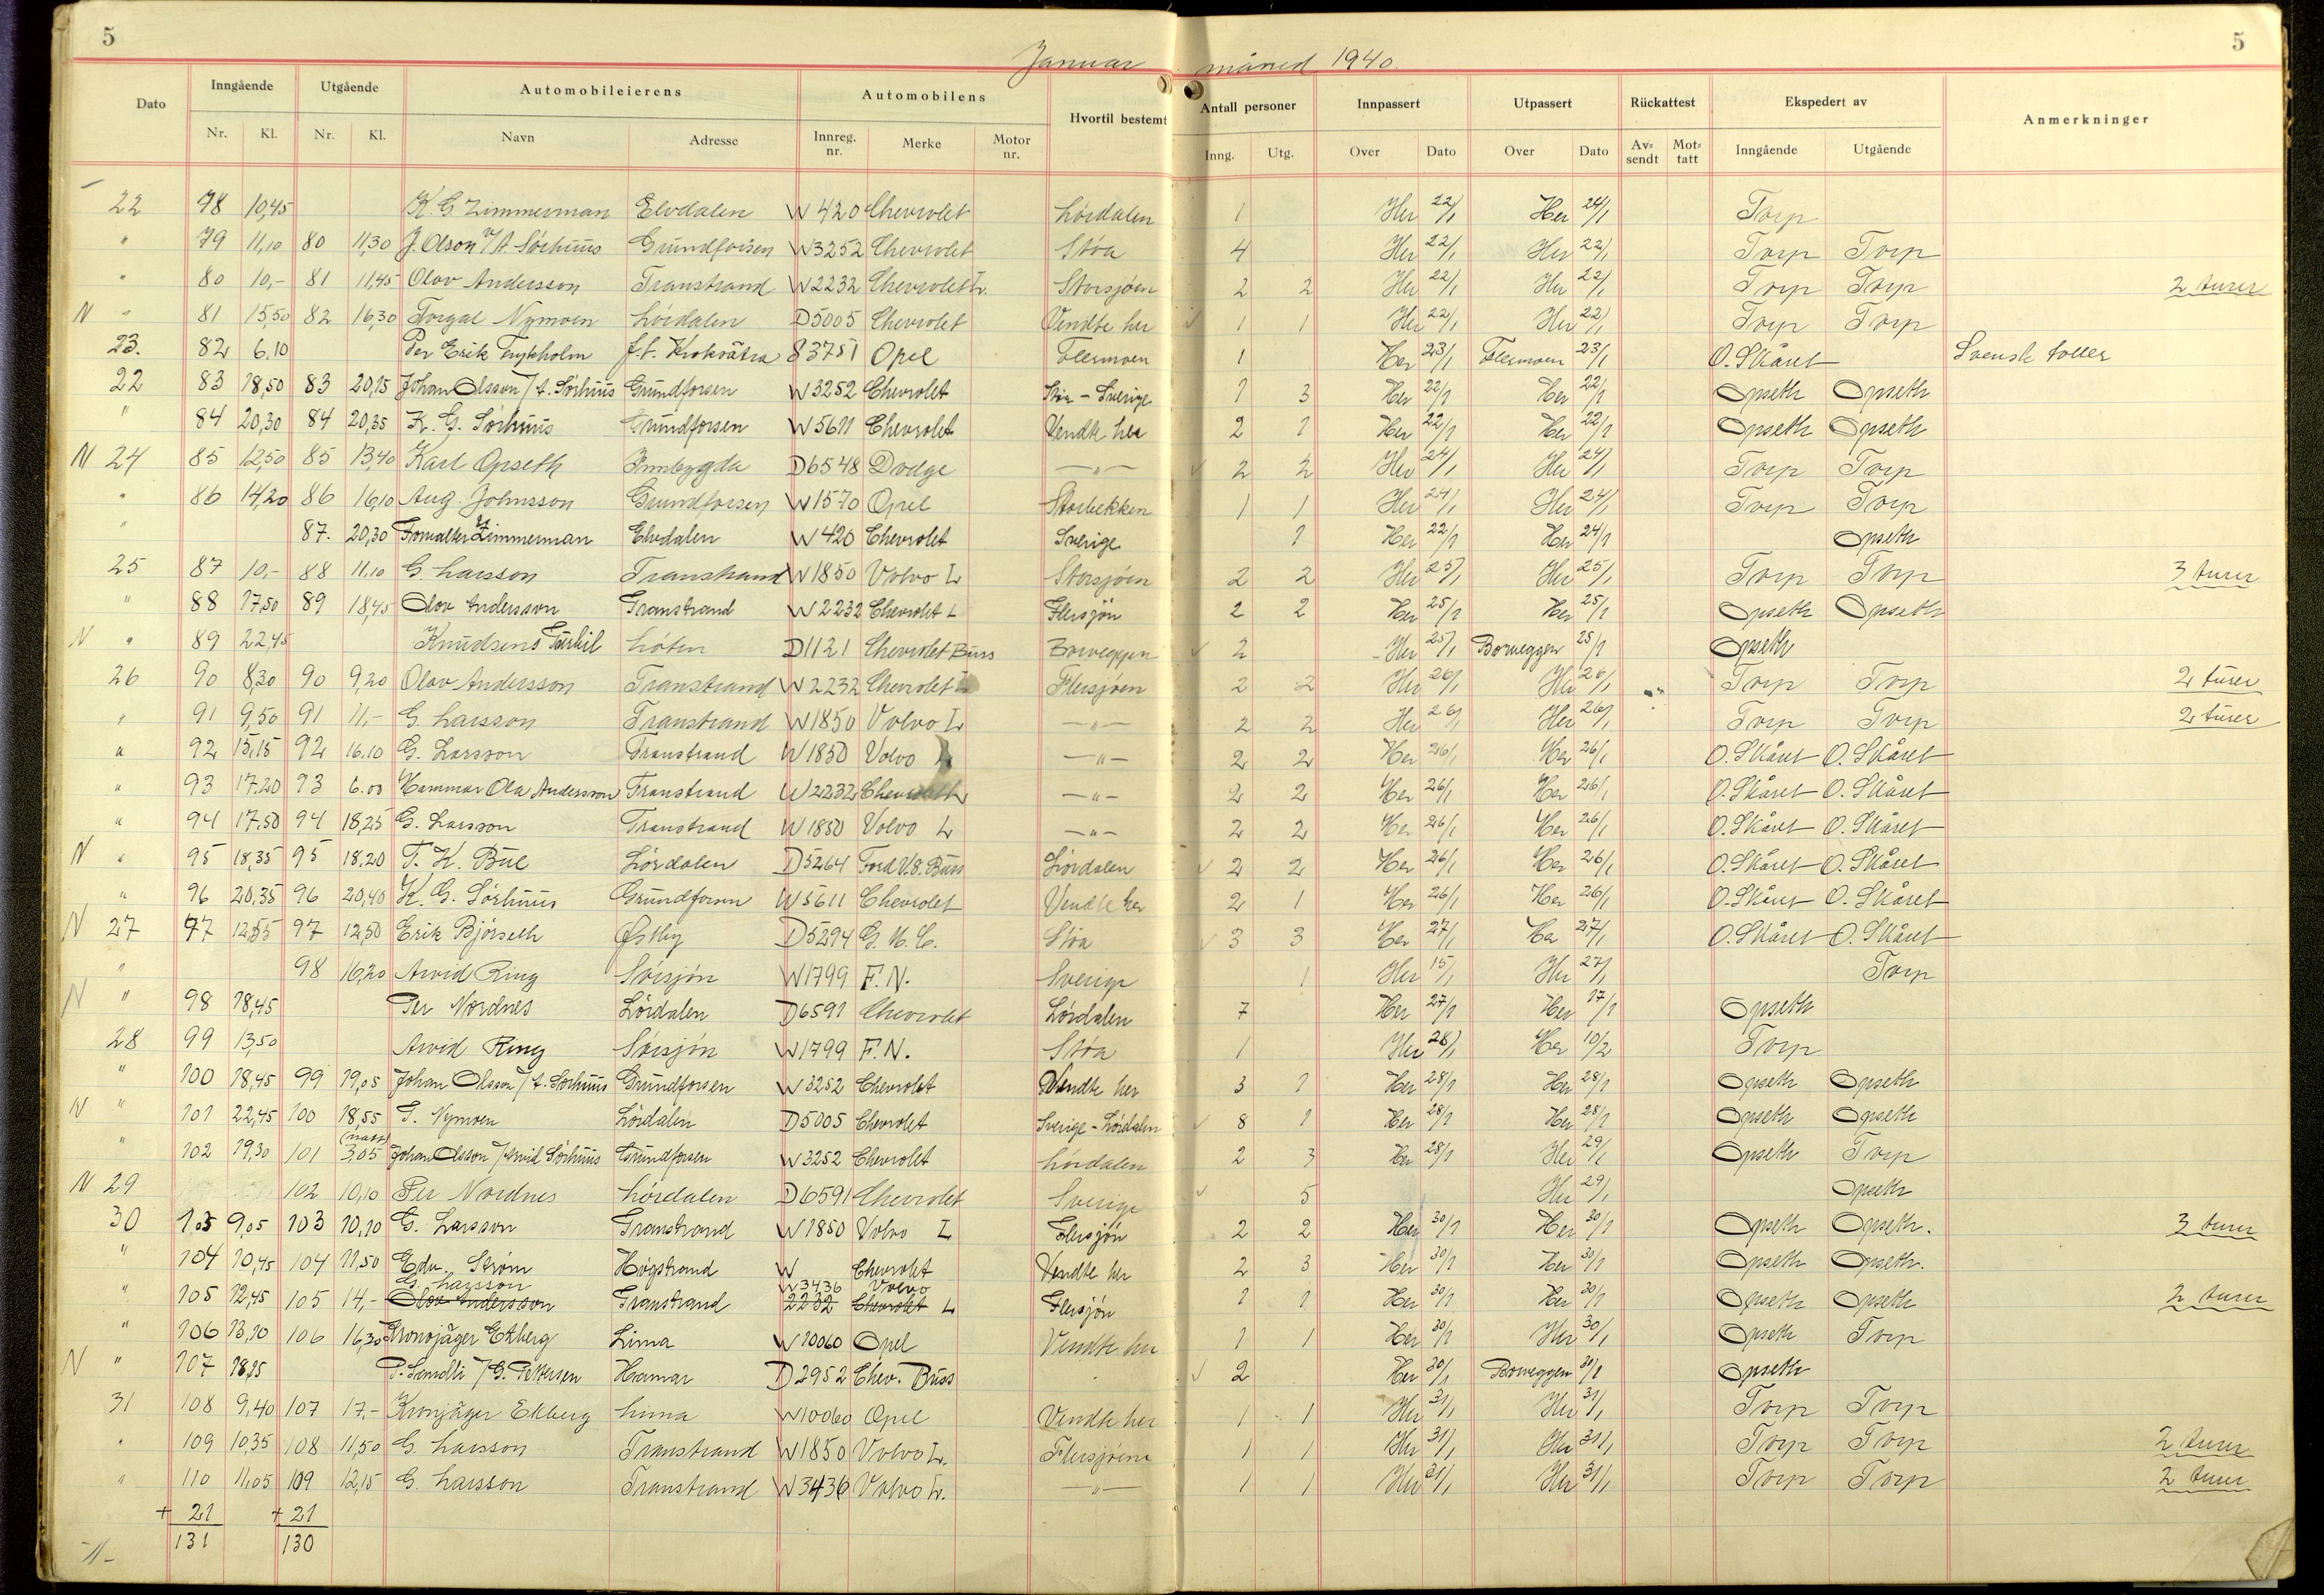 5
5
Januar måned 1940.
Dato Inngående Utgående Automobileierens Automobilens Hvortil bestemt Antall personer Innpassert Utpassert Rückattest Ekspedert av Anmerkninger
Nr. Kl. Nr. Kl. Navn Adresse Innreg. nr. Merke Motor nr. Inng. Utg. Over Dato Over Dato Av-sendt Mot-tatt Inngående Utgående
22 78 10,45 K. G. Zimmerman Elvdalen W 420 Chevrolet Lørdalen 1 Her 22/1 Her 24/1 Torp
" 79 11,10 80 11,30 J. Olson v/A. Sörhuus Grundforsen W3252 Chevrolet Støa 4 Her 22/1 Her 22/1 Torp Torp
" 80 10,- 81 11,45 Olov Andersson Transtrand W2232 Chevrolet L. Storsjøen 2 2 Her 22/1 Her 22/1 Torp Torp 2 turer
N " 81 15,50 82 16,30 Torgal Nymoen Lørdalen D5005 Chevrolet Vendte her √ 1 1 Her 22/1 Her 22/1 Torp Torp
23. 82 6,10 Per Erik Frykholm Krokvåtra S 3751 Opel Flermoen 1 Her 23/1 Flermoen 23/1 O. Skåret Svensk toller
22 83 18,50 83 20,15 Johan Olsson / A. Sörhuus Grundforsen W3252 Chevrolet Støa - Sverige 1 3 Her 22/1 Her 22/1 Opseth Opseth
" 84 20,30 84 20,35 K. G. Sörhuus Grundforsen W5611 Chevrolet Vendte her 2 1 Her 22/1 Her 22/1 Opseth Opseth
N 24 85 12,50 85 13,40 Karl Opseth Innbygda D6548 Dodge —"— √ 2 2 Her 24/1 Her 24/1 Torp Torp
" 86 14,20 86 16,10 Aug. Johnsson Grundforsen W1570 Opel Storbekken 1 1 Her 24/1 Her 24/1 Torp Torp
" 87. 20,30 Forvalter Zimmerman Elvdalen W 420 Chevrolet Sverige 1 Her 22/1 Her 24/1 Opseth
25 87 10,- 88 11,10 G. Larsson Transtrand W1850 Volvo L Storsjøen 2 2 Her 25/1 Her 25/1 Torp Torp 3 turer
" 88 17,50 89 18,45 Olov Andersson Transtrand W2232 Chevrolet L Flersjön 2 2 Her 25/1 Her 25/1 Opseth Opseth
N " 89 22,45 Knudsens Løten D1121 Chevrolet Buss Borveggen √ 2 Her 25/1 Borveggen 25/1 Opseth
26 90 8,30 90 9,20 Olov Andersson Transtrand W2232 Chevrolet L Flersjøen 2 2 Her 26/1 Her 26/1 Torp Torp 2 turer
" 91 9,50 91 11,- G. Larsson Transtrand W1850 Volvo L —"— 2 2 Her 26/1 Her 26/1 Torp Torp 2 turer
" 92 15,15 92 16.10 G. Larsson Transtrand W1850 Volvo L —"— 2 2 Her 26/1 Her 26/1 O. Skåret O. Skåret
" 93 17.20 93 6.00 Hammar Ola Andersson Transtrand W2232 Chevrolet L —"— 2 2 Her 26/1 Her 26/1 O. Skåret O. Skåret
" 94 17.50 94 18,25 G. Larsson Transtrand W1850 Volvo L —"— 2 2 Her 26/1 Her 26/1 O. Skåret O. Skåret
N " 95 18,35 95 18,20 T. K. Bue Lørdalen D5264 Ford V.8. Buss Lørdalen √ 2 2 Her 26/1 Her 26/1 O. Skåret O. Skåret
" 96 20,35 96 20,40 K. G. Sørhuus Grundforsen W5611 Chevrolet Vendte her 2 1 Her 26/1 Her 26/1 O. Skåret O. Skåret
N 27 97 12,55 97 12,50 Erik Bjørseth Østby D5294 G. M. C. Støa √ 3 3 Her 27/1 Her 27/1 O. Skåret O. Skåret
" 98 16,20 Arvid Ring Sörsjön W1799 F.N. Sverige 1 Her 15/1 Her 27/1 Torp
N " 98 18,45 Per Nordnes Lördalen D6591 Chevrolet Lördalen 7 Her 27/1 Her 17/1 Opseth
28 99 13,50 Arvid Ring Sörsjön W1799 F.N. Støa 1 Her 28/1 Her 10/2 Torp
" 100 18,45 99 19,05 Johan Olsson / A. Sörhuus Grundforsen W3252 Chevrolet Vendte her 3 1 Her 28/1 Her 28/1 Opseth Opseth
N " 101 22,45 100 18,55 T. Nymoen Lördalen D5005 Chevrolet Sverige - Lördalen √ 8 1 Her 28/1 Her 28/1 Opseth Opseth
" 102 19,30 101 (natt) 3,05 Johan Olsson / Arvid Sörhuus Grundforsen W3252 Chevrolet Lørdalen 2 3 Her 28/1 Her 29/1 Opseth Torp
N 29 102 10,10 Per Nordnes Lørdalen D6591 Chevrolet Sverige √ 5 Her 29/1 Opseth
30 103 9,05 103 10,10 G. Larsson Transtrand W1850 Volvo L Flersjön 2 2 Her 30/1 Her 30/1 Opseth Opseth. 3 turer
" 104 10,45 104 11,50 Edv. Ström Högstrand W Chevrolet Vendte her 2 3 Her 30/1 Her 30/1 Opseth Opseth.
G. Larsson W3436 Volvo
" 105 12,45 105 14,- Olov Andersson Transtrand 2232 Chevrolet L Flersjön 1 1 Her 30/1 Her 30/1 Opseth Opseth 2 turer
" 106 13,10 106 16,35 Kronojäger Ekberg Lima W10060 Opel Vendte her 1 1 Her 30/1 Her 30/1 Opseth Torp
N " 107 18,15 P. Sendli / G. Pettersen Hamar D2952 Chev. Buss √ 2 Her 30/1 Borveggen 30/1 Opseth
31 108 9,40 107 17,- Kronjäger Ekberg Lima W10060 Opel Vendte her 1 1 Her 31/1 Her 31/1 Torp Torp
" 109 10,35 108 11,50 G. Larsson Transtrand W1850 Volvo L. Flersjøen 1 1 Her 31/1 Her 31/1 Torp Torp 2 turer
" 110 11,05 109 12,15 G. Larsson Transtrand W3436 Volvo L. —"— 1 1 Her 31/1 Her 31/1 Torp Torp 2 turer
+ 21 + 21
131 130